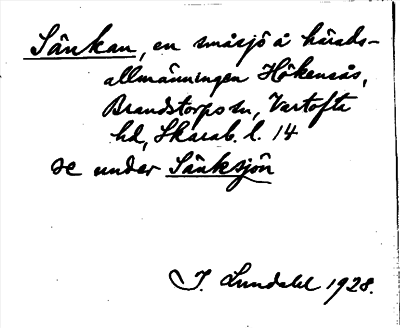 Sänkan, en småsjö å härads-
allmänningen Hökensås,
Brandstorps sn, Vartofta
hd, Skarab. l. 14
se under Sänksjön
J. Lundahl 1928.